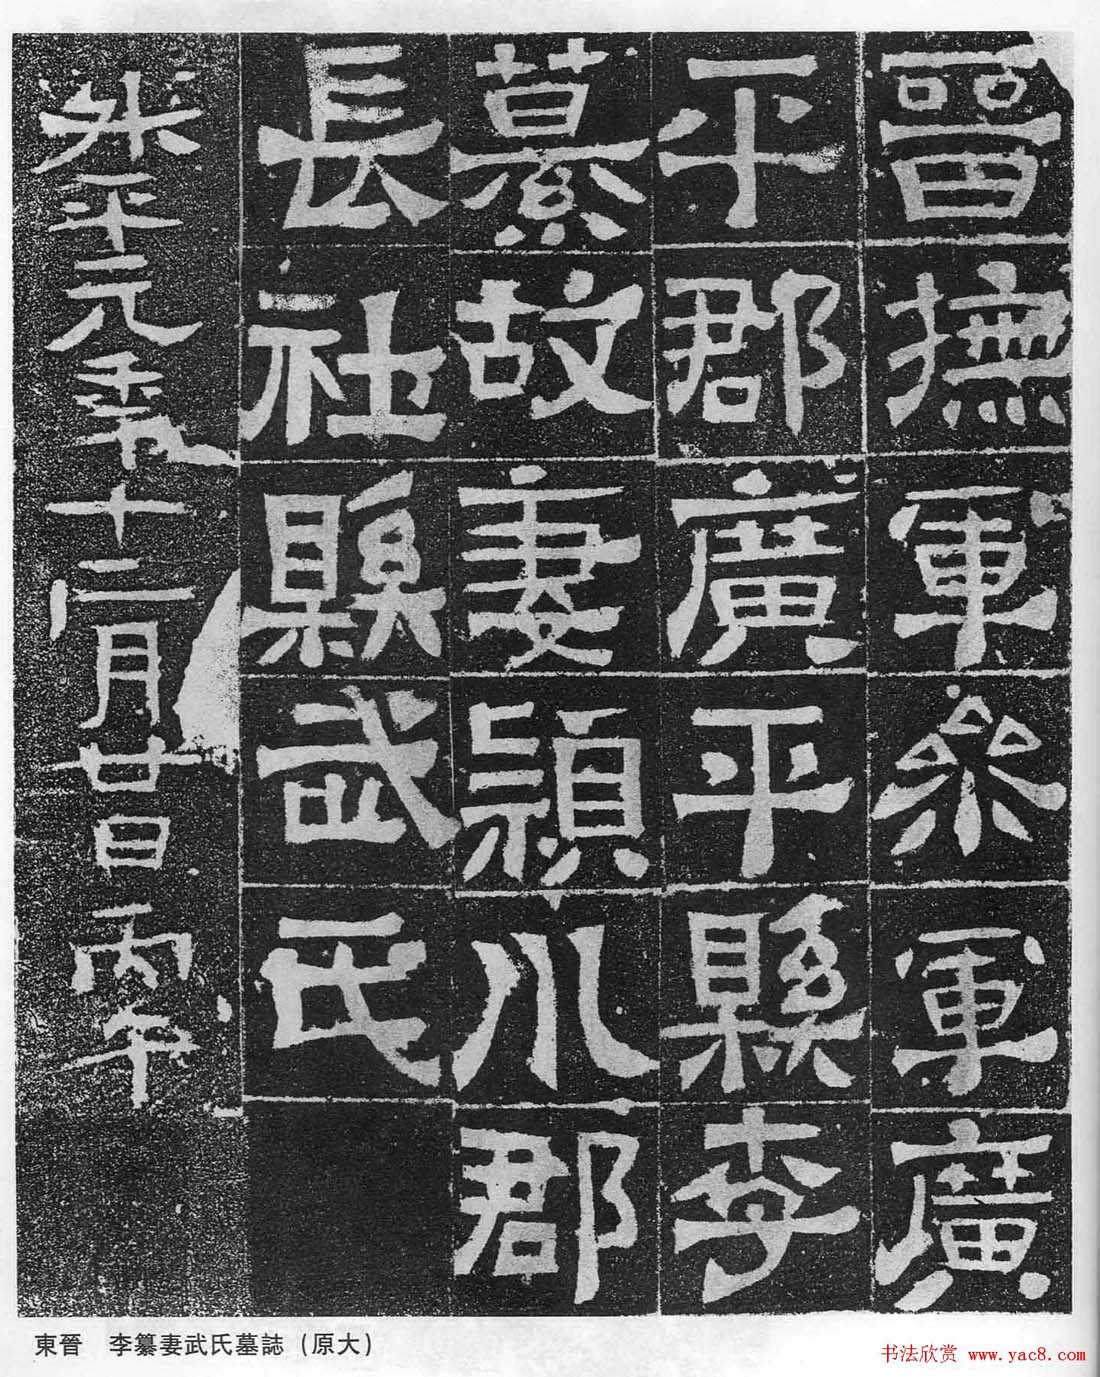 晉撫軍參軍廣
平郡廣平縣李
纂故妻頴川郡
長社縣武氏
升平元年十二月廿日丙午
東晉　李纂妻武氏墓誌（原大）
书法欣赏 www.yac8.com